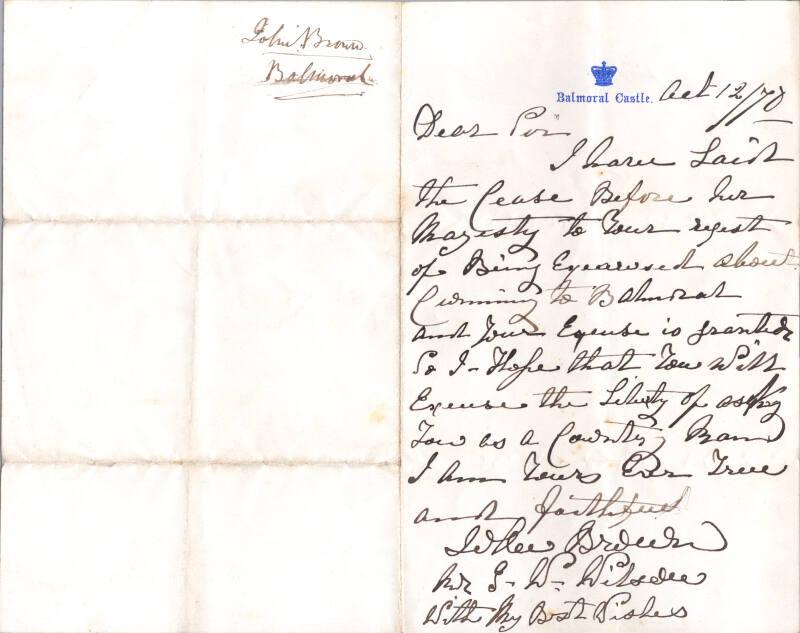 John Brown
Balmoral
Balmoral Castle.
Oct 12/78
Dear Sir
I have Laid
the Cease Before her
Magesty to Your regest
of Being Exacused about
Cumming to Balmoral
and Your Excuse is granted
So I Hope that You Will
Excuse the Liberty of asking
You as a Country Man
I am Yours Ever True
and faithful
John Brown
Mr W Wilson
With My Best Wishes